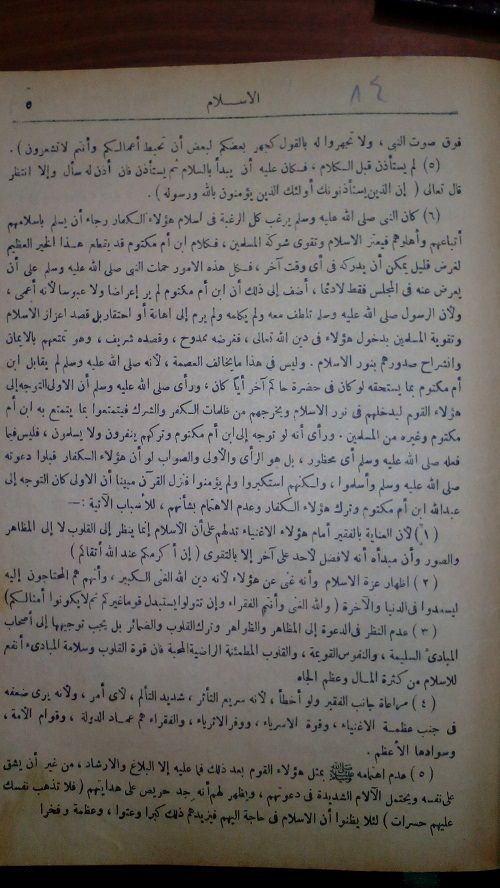 الاسلام
٨٤
٥
فوق صوت النبى ، ولا تجهروا له بالقول كجهر بعضكم لبعض أن تحبط أعمالكم وأنتم لا تشعرون ) .
(٥) لم يستأذن قبل الكلام ، فكان عليه أن يبدأ بالسلام ثم يستأذن فان أذن له سأل وإلا انتظر
قال تعالى ( إن الذين يستأذنونك أولئك الذين يؤمنون بالله ورسوله ) .
(٦) كان النبى صلى الله عليه وسلم يرغب كل الرغبة فى اسلام هؤلاء الكفار رجاء أن يسلم باسلامهم
أتباعهم وأهلوهم فيعتز الاسلام وتقوى شوكة المسلمين ، فكلام ابن أم مكتوم قد يقطع هذا الخير العظيم
لغرض قليل يمكن أن يدركه فى أى وقت آخر ، فكل هذه الامور حملت النبى صلى الله عليه وسلم على أن
يعرض عنه فى المجلس فقط لا دائما ، أضف إلى ذلك أن ابن أم مكتوم لم ير إعراضا ولا عبوسا لأنه أعمى ،
ولأن الرسول صلى الله عليه وسلم تلطف معه ولم يكلمه ولم يرم إلى اهانة أو احتقار بل قصد اعزاز الاسلام
وتقوية المسلمين بدخول هؤلاء فى دين الله تعالى ، فغرضه ممدوح ، وقصده شريف ، وهو تمتعهم بالايمان
وانشراح صدورهم بنور الاسلام . وليس فى هذا ما يخالف العصمة ، لأنه صلى الله عليه وسلم لم يقابل ابن
أم مكتوم بما يستحقه لو كان فى حضرة حاكم آخر أياً كان ، ورأى صلى الله عليه وسلم أن الاولى التوجه إلى
هؤلاء القوم ليدخلهم فى نور الاسلام ويخرجهم من ظلمات الكفر والشرك فيتمتعوا بما يتمتع به ابن أم
مكتوم وغيره من المسلمين . ورأى أنه لو توجه إلى ابن أم مكتوم وتركهم ينفرون ولا يسلمون ، فليس فيما
فعله صلى الله عليه وسلم أى محظور ، بل هو الرأى والأولى والصواب لو أن هؤلاء الكفار قبلوا دعوته
صلى الله عليه وسلم وأسلموا ، ولكنهم استكبروا ولم يؤمنوا فنزل القرآن مبينا أن الاولى كان التوجه إلى
عبدالله ابن أم مكتوم وترك هؤلاء الكفار وعدم الاهتمام بشأنهم ، للأسباب الآتية : —
(١) لأن العناية بالفقير أمام هؤلاء الاغنياء تدلهم على أن الاسلام إنما ينظر إلى القلوب لا إلى المظاهر
والصور وأن مبدأه أنه لا فضل لاحد على آخر إلا بالتقوى ( إن أكرمكم عند الله أتقاكم )
(٢) اظهار عزة الاسلام وأنه غنى عن هؤلاء لأنه دين الله الغنى الكبير ، وأنهم هم المحتاجون إليه
ليسعدوا فى الدنيا والآخرة ( والله الغنى وأنتم الفقراء وإن تتولوا يستبدل قوما غيركم ثم لا يكونوا أمثالكم )
(٣) عدم النظر فى الدعوة إلى المظاهر والظواهر وترك القلوب والضمائر بل يجب توجيهها إلى أصحاب
المبادىء السليمة ، والنفوس القويمة ، والقلوب المطمئنة الراضية المحبة فان قوة القلوب وسلامة المبادىء أنفع
للاسلام من كثرة المال وعظم الجاه
(٤) مراعاة جانب الفقير ولو أخطأ ، لأنه سريع التأثر ، شديد التألم ، لأى أمر ، ولأنه يرى ضعفه
فى جنب عظمة الاغنياء ، وقوة الاسرياء ، ووفر الاثرياء ، والفقراء هم عماد الدولة ، وقوام الأمة ،
وسوادها الأعظم .
(٥) عدم اهتمامه ﷺ بمثل هؤلاء القوم بعد ذلك فما عليه إلا البلاغ والارشاد ، من غير أن يشق
على نفسه ويحتمل الآلام الشديدة فى دعوتهم ، ويظهر لهم أنه جد حريص على هدايتهم ( فلا تذهب نفسك
عليهم حسرات ) لئلا يظنوا أن الاسلام فى حاجة اليهم فيزيدهم ذلك كبرا وعتوا ، وعظمة وفخرا